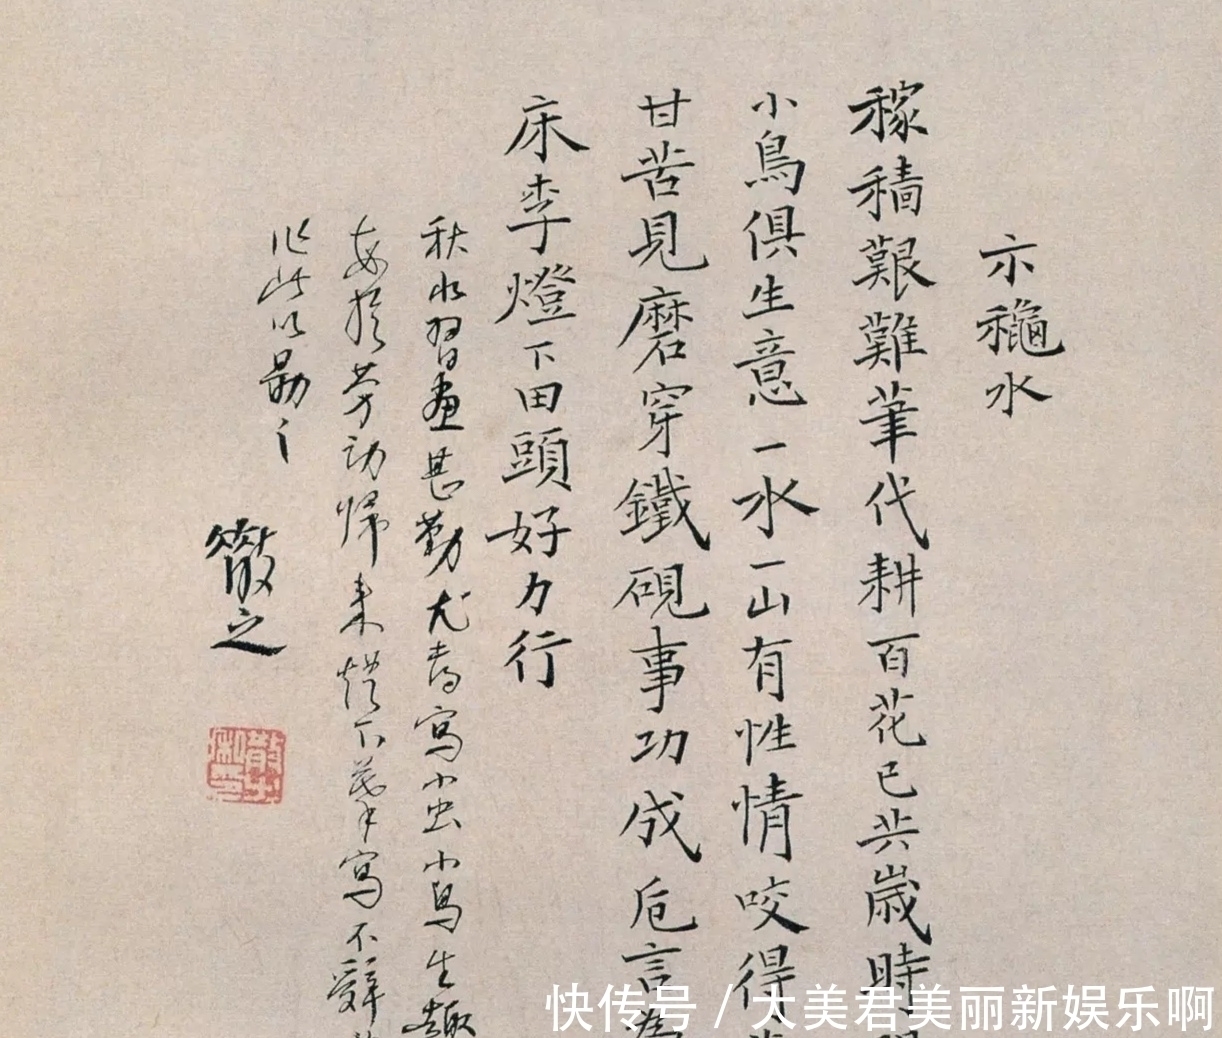 示穐水
稼穡艱難筆代耕百花已共歲時
小鳥俱生意一水一山有性情咬得
甘苦見磨穿鐵硯事功成卮言為
床李燈下田頭好力行
秋水習畫甚勤尤喜寫小虫小鳥生趣
每於勞动歸来燈下筆寫不辭
作此以勗之
散之
快传号 / 大美君美丽新娱乐啊